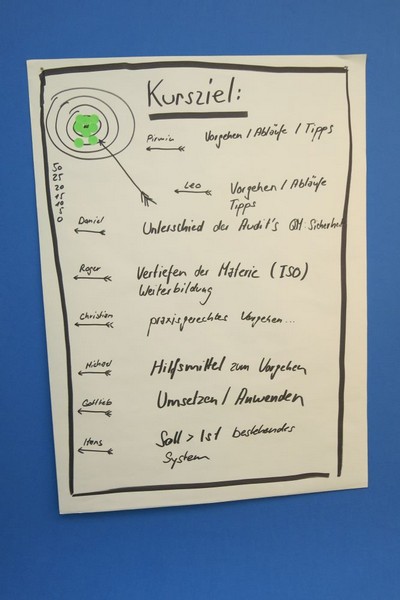 Kursziel:
Pirmin Vorgehen / Abläufe / Tipps
50
25
20
15
10
5
0
Leo Vorgehen / Abläufe
Tipps
Daniel Unterschied der Audit's QM: Sicherheit
Roger Vertiefen der Materie (ISO)
Weiterbildung
Christian praxisgerechtes Vorgehen...
Michael Hilfsmittel zum Vorgehen
Gottlieb Umsetzen / Anwenden
Hans Soll > Ist bestehendes
System